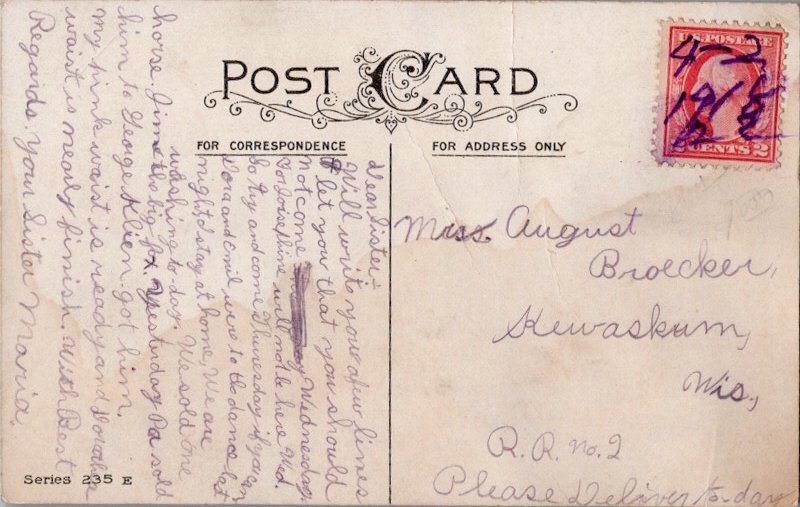 POST CARD
FOR CORRESPONDENCE
FOR ADDRESS ONLY
U.S. POSTAGE
2 CENTS 2
4-2
1918
Dear Sister-
Will writ youe a few lines
& let you that you should
not come Wednesday
Josiphine will not be here Wed.
so try and come Thuresday if you can
Dora and Emil were to the dance last
night, I stay at home, We are
washing to day. We sold one
horse Jim the big fox. Yesterday Pa sold
him to George Klien. got him.
My pink waist is ready and Dorothes
waist is nearly finish. With Best
Regards. Your Sister Maria.
Series 235 E
Mrs. August
Broecker,
Kewaskum,
Wis.,
R.R. no. 2
Please Deliver to-day